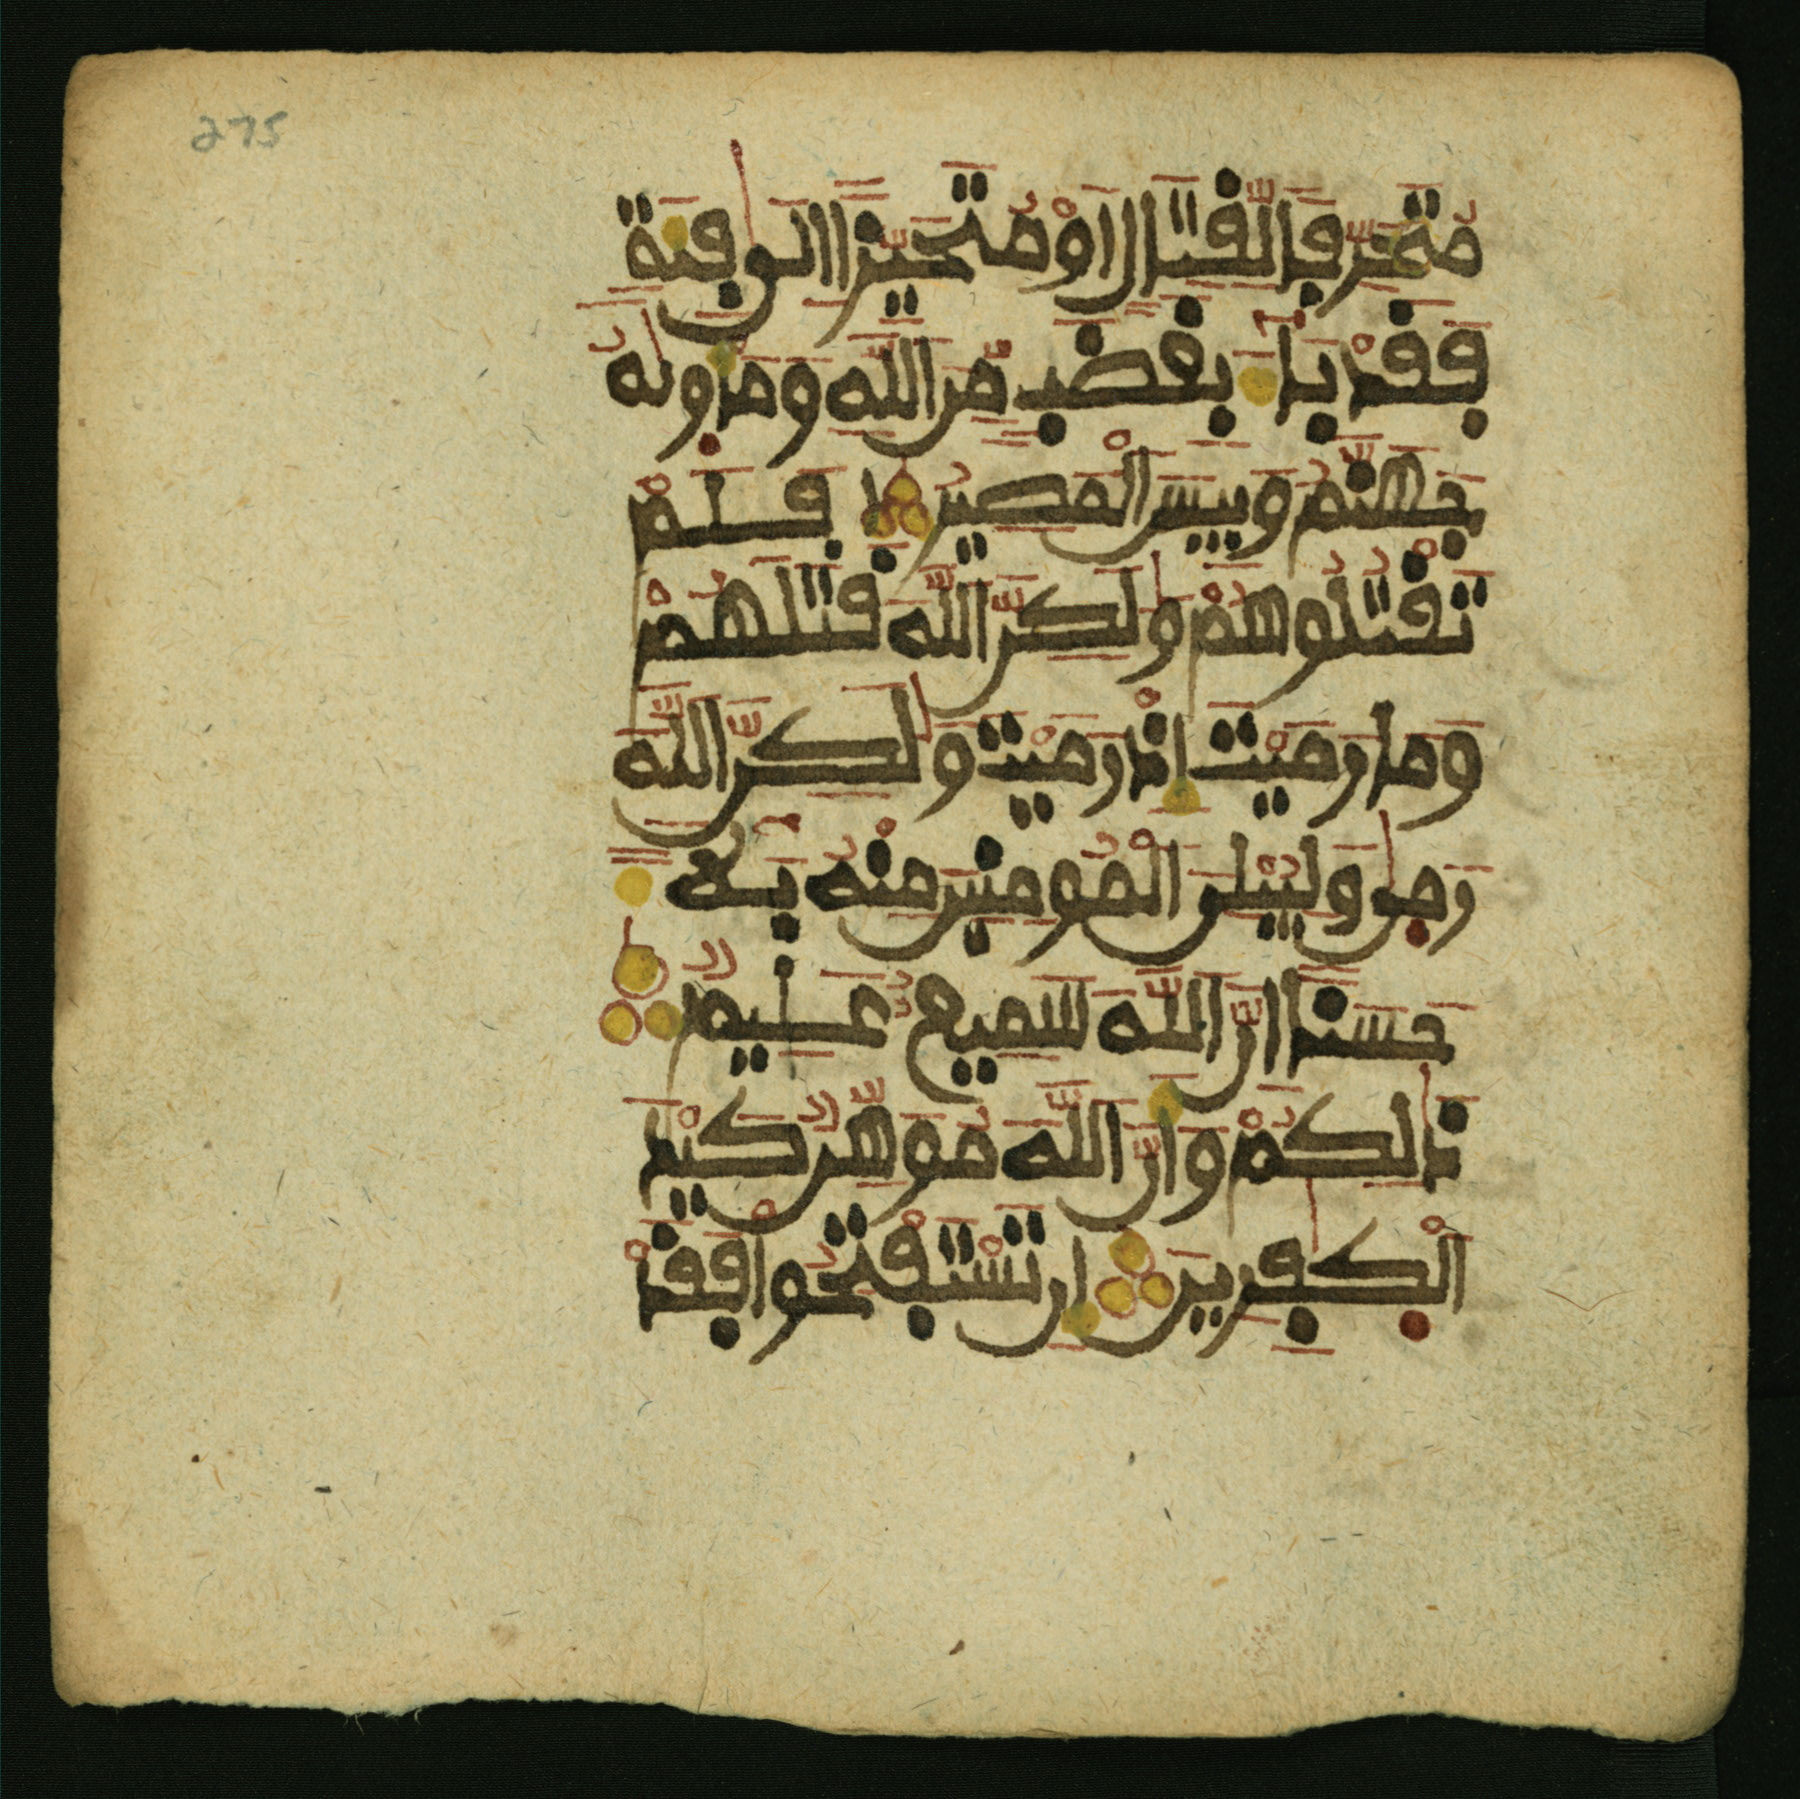 275
مُتَحَرِّفًا لِّقِتَالٍ اَوْ مُتَحَيِّزًا اِلَىٰ فِئَةٍ
فَقَدْ بَاءَ بِغَضَبٍ مِّنَ اللَّهِ وَمَأْوٰىهُ
جَهَنَّمُ وَبِيسَ الْمَصِيرُ فَلَمْ
تَقْتُلُوهُمْ وَلَٰكِنَّ اللَّهَ قَتَلَهُمْ
وَمَا رَمَيْتَ اِذْ رَمَيْتَ وَلَٰكِنَّ اللَّهَ
رَمَىٰ وَلِيُبْلِيَ الْمُومِنِينَ مِنْهُ بَلَاءً
حَسَنًا اِنَّ اللَّهَ سَمِيعٌ عَلِيمٌ
ذَٰلِكُمْ وَأَنَّ اللَّهَ مُوَهِّنٌ كَيْدَ
الْكَٰفِرِينَ اِن تَسْتَفْتِحُوا فَقَدْ